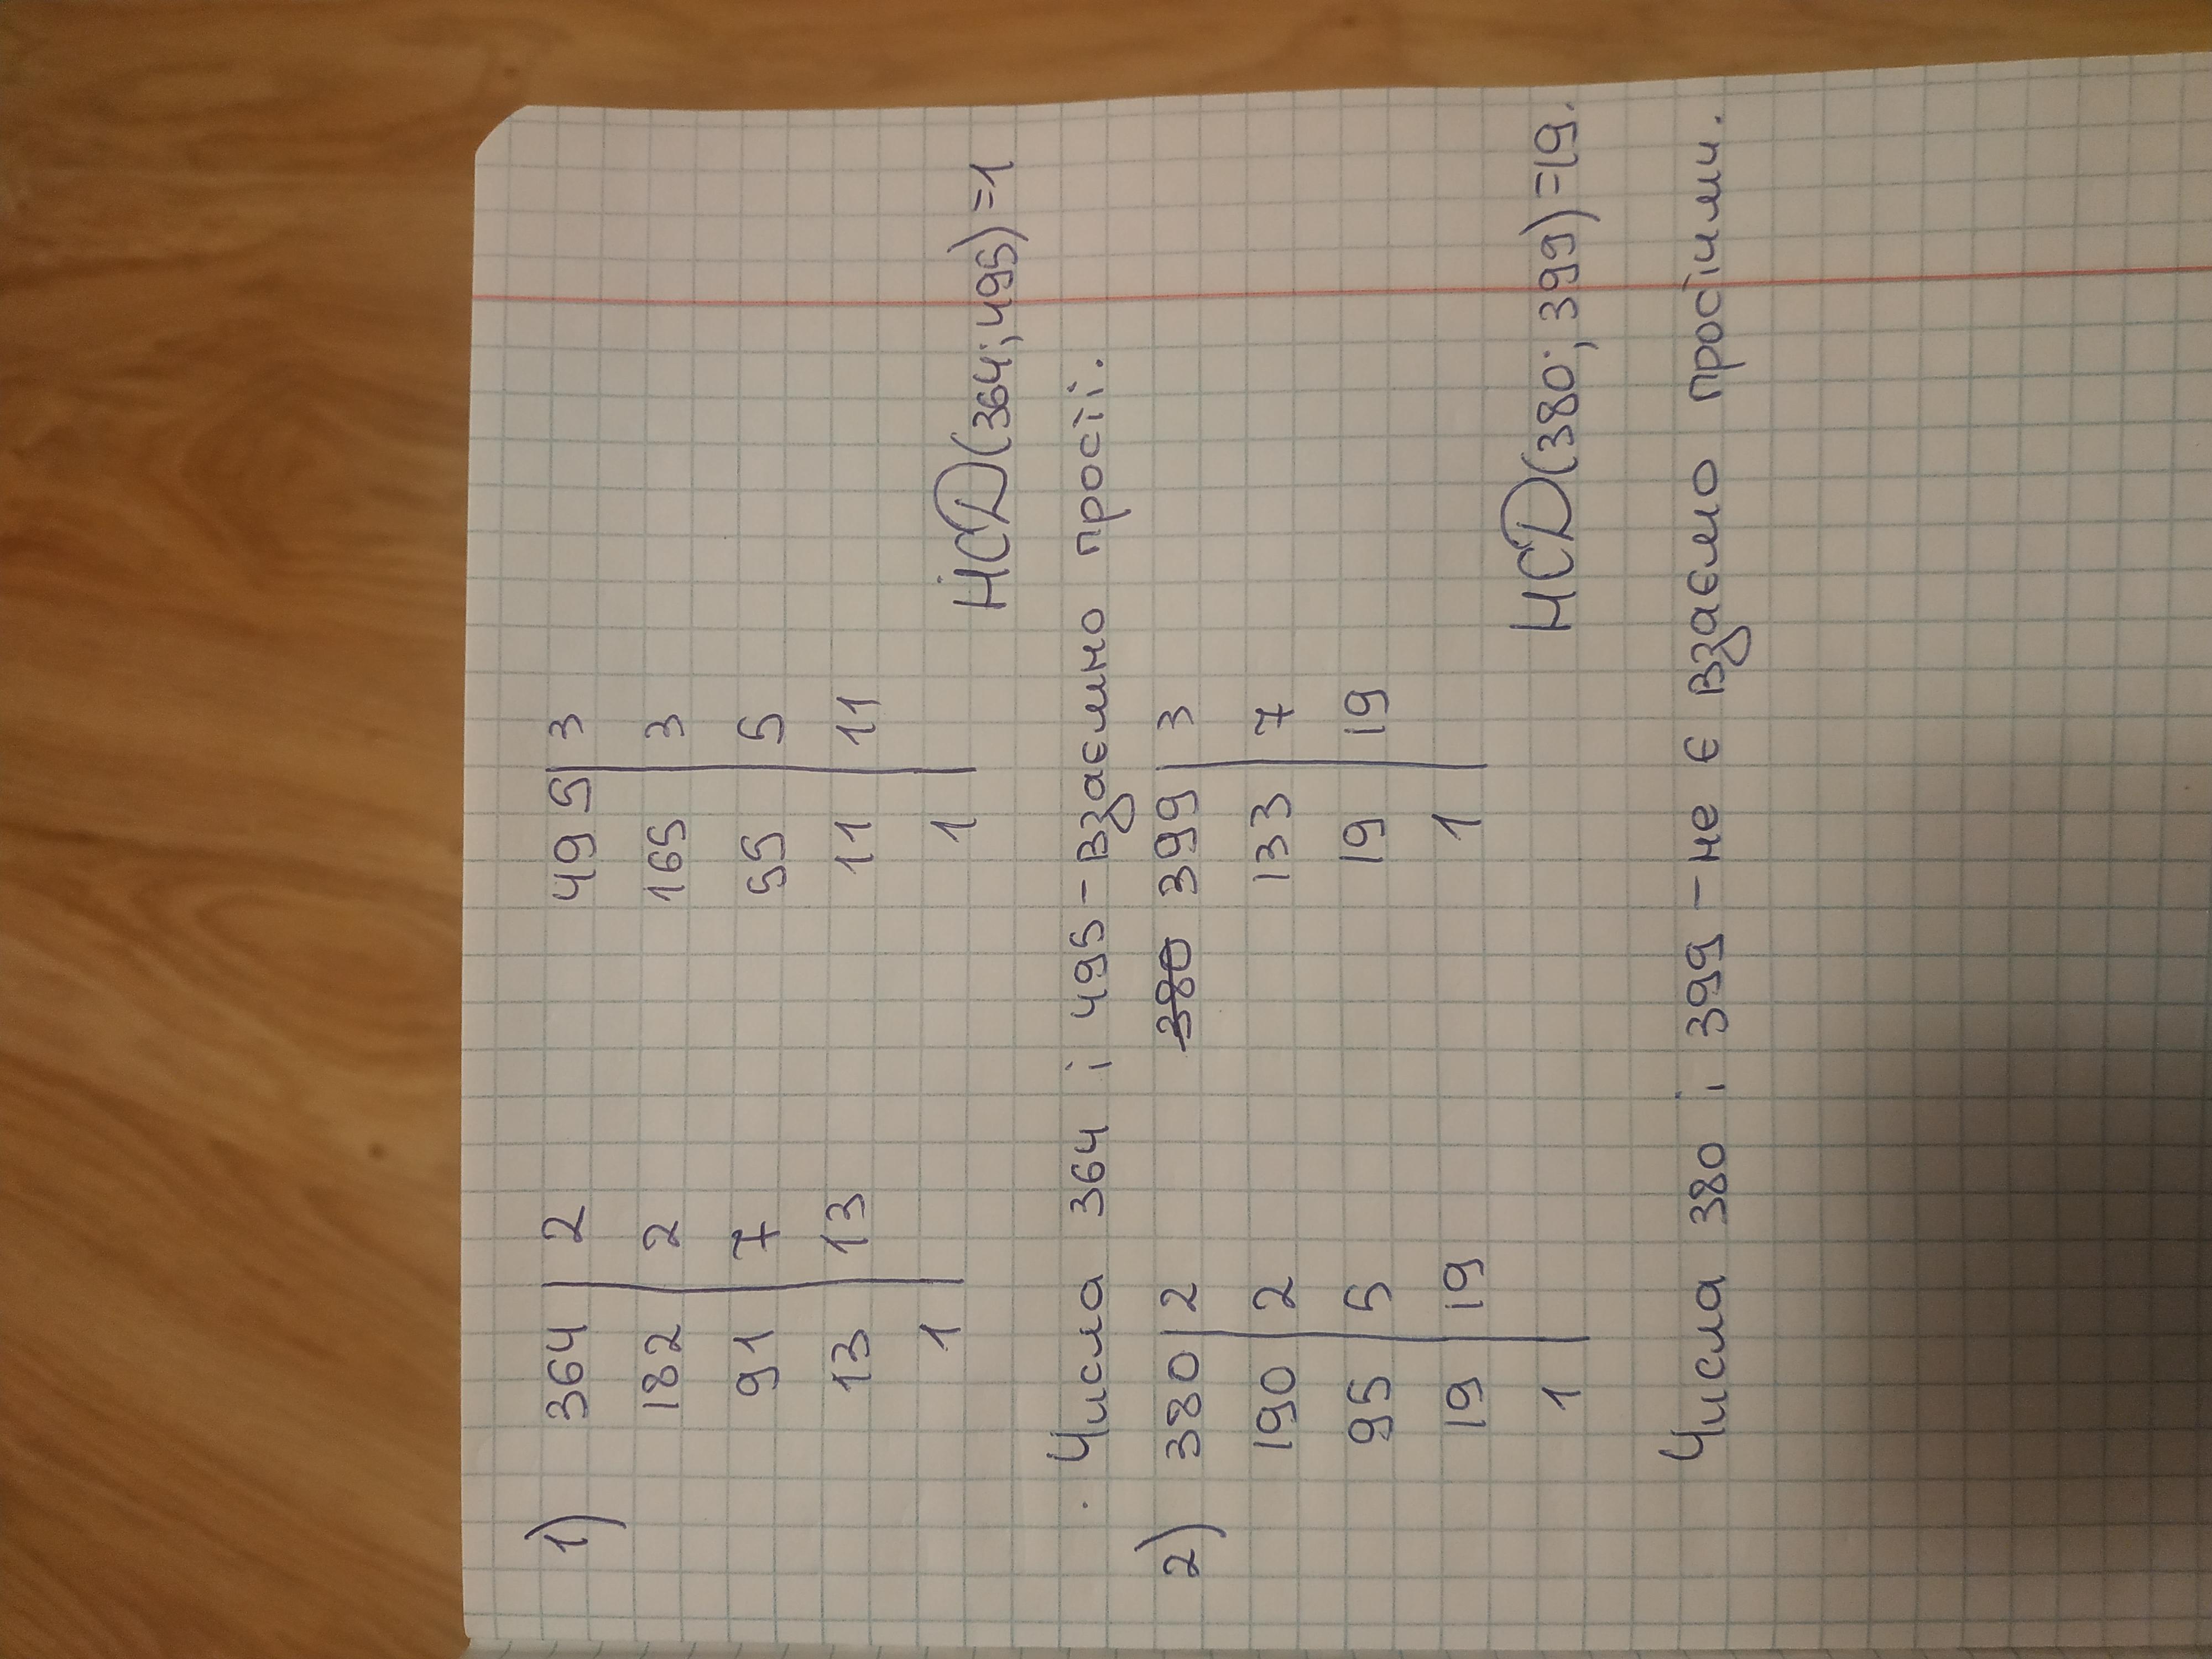 1) 364 | 2 495 | 3
182 | 2 165 | 3
91 | 7 55 | 5
13 | 13 11 | 11
1 1
НСД(364; 495)=1
Числа 364 і 495 - взаємно прості.
2) 380 | 2 380 399 | 3
190 | 2 133 | 7
95 | 5 19 | 19
19 | 19 1
1 НСД(380; 399)=19.
Числа 380 і 399 - не є взаємо простими.